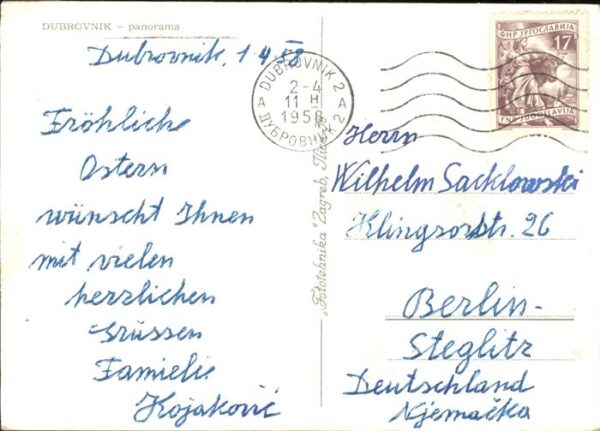 DUBROVNIK – panorama
Dubrovnik, 1 4 58
Fröhliche
Ostern
wünscht Ihnen
mit vielen
herzlichen
Grüssen
Familie
Kojaković
"Fototehnika" Zagreb,
DUBROVNIK 2
2-4
11 H
1958
A A
ДУБРОВНИК 2
ФНР ЈУГОСЛАВИЈА
17
FNR JUGOSLAVIJA
Herrn
Wilhelm Sacklowski
Klingsorstr. 26
Berlin-
Steglitz
Deutschland
Njemačka